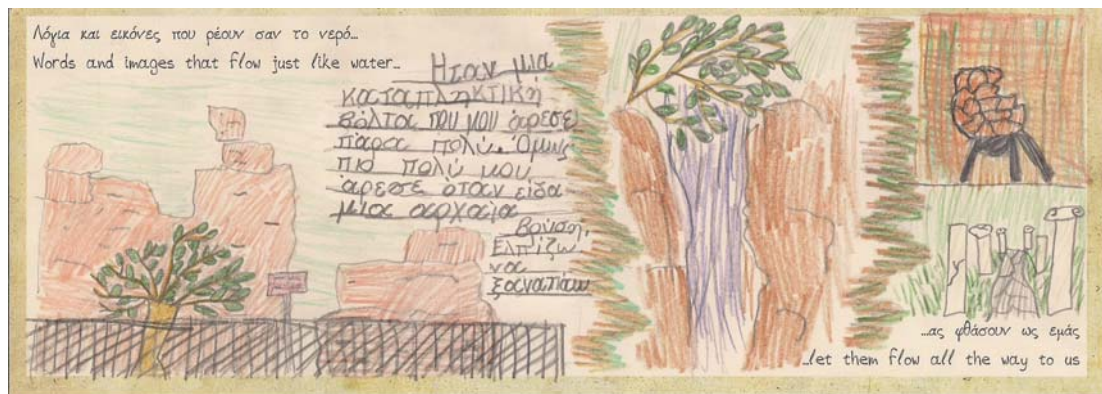 Λόγια και εικόνες που ρέουν σαν το νερό...
Words and images that flow just like water...
Ήταν μία
καταπληκτική
βόλτα που μου άρεσε
πάρα πολύ. Όμως
πιο πολύ μου
άρεσε όταν είδα
μία αρχαία
βρύση,
Ελπίζω
να
ξαναπάω
...ας φθάσουν ως εμάς
...let them flow all the way to us